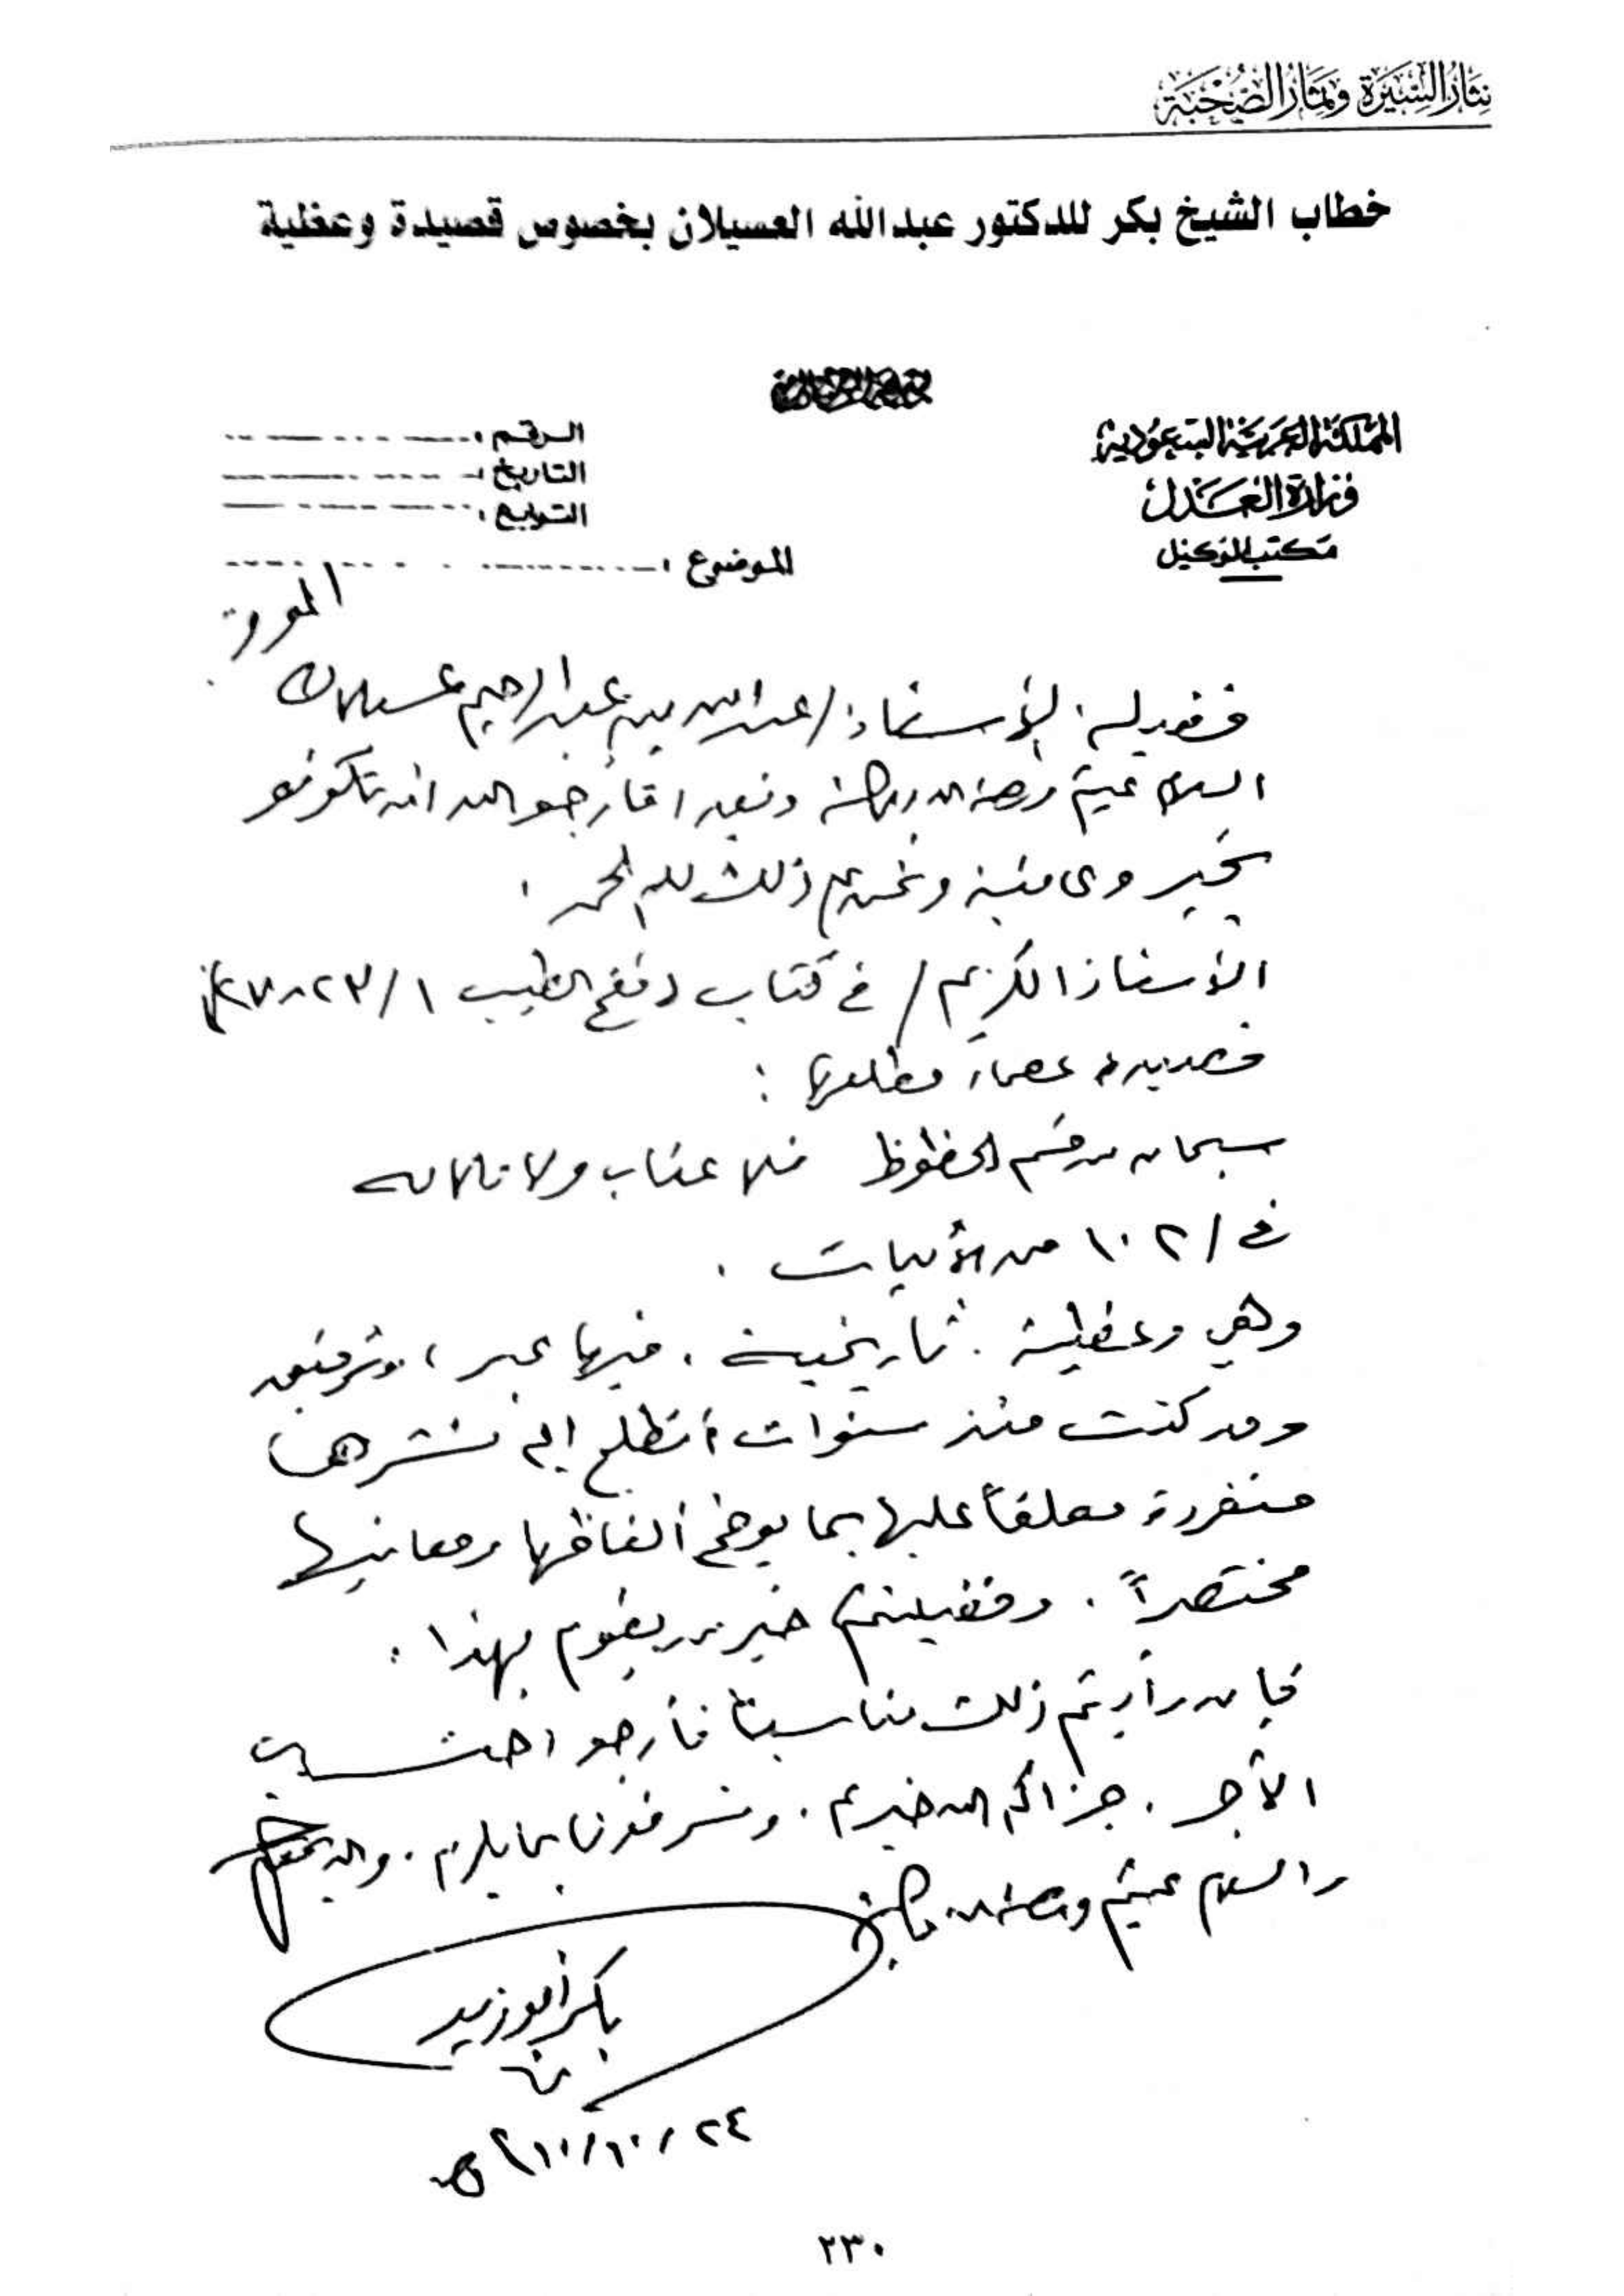 نثار السيرة وثمار الصحبة
خطاب الشيخ بكر للدكتور عبدالله العسيلان بخصوص قصيدة وعظية
المملكة العربية السعودية
وزارة العدل
مكتب الوكيل
الرقم :
التاريخ :
التوابع :
الموضوع :
فضيلة الأستاذ / عبد الله بن عبد الرحيم عسيلان
السلام عليكم ورحمة الله وبركاته وبعد فأرجو الله أن تكونوا
بخير وعافية ونحن على ذلك لله الحمد .
الأستاذ الكريم / في كتاب نفح الطيب ١ /
قصيدة عصماء مطلعها :
سبحان من قسم الحظوظ فلا عتاب ولا ملامه
في / ١٠٢ من الأبيات .
وهي وعظية . تاريخية . فيها عبر ،
وقد كنت منذ سنوات أتطلع إلى نشرها
منفردة معلقاً عليها بما يوضح ألفاظها ومعانيها
مختصراً . وفضيلتكم خير من يقوم بهذا .
فإن رأيتم ذلك مناسباً فأرجو احتساب
الأجر . جزاكم الله خيراً . وتشرفونا بما يلزم . والله يحفظكم
والسلام عليكم ورحمة الله وبركاته
بكر أبو زيد
٢٤ / ١٠ /
٢٣٠